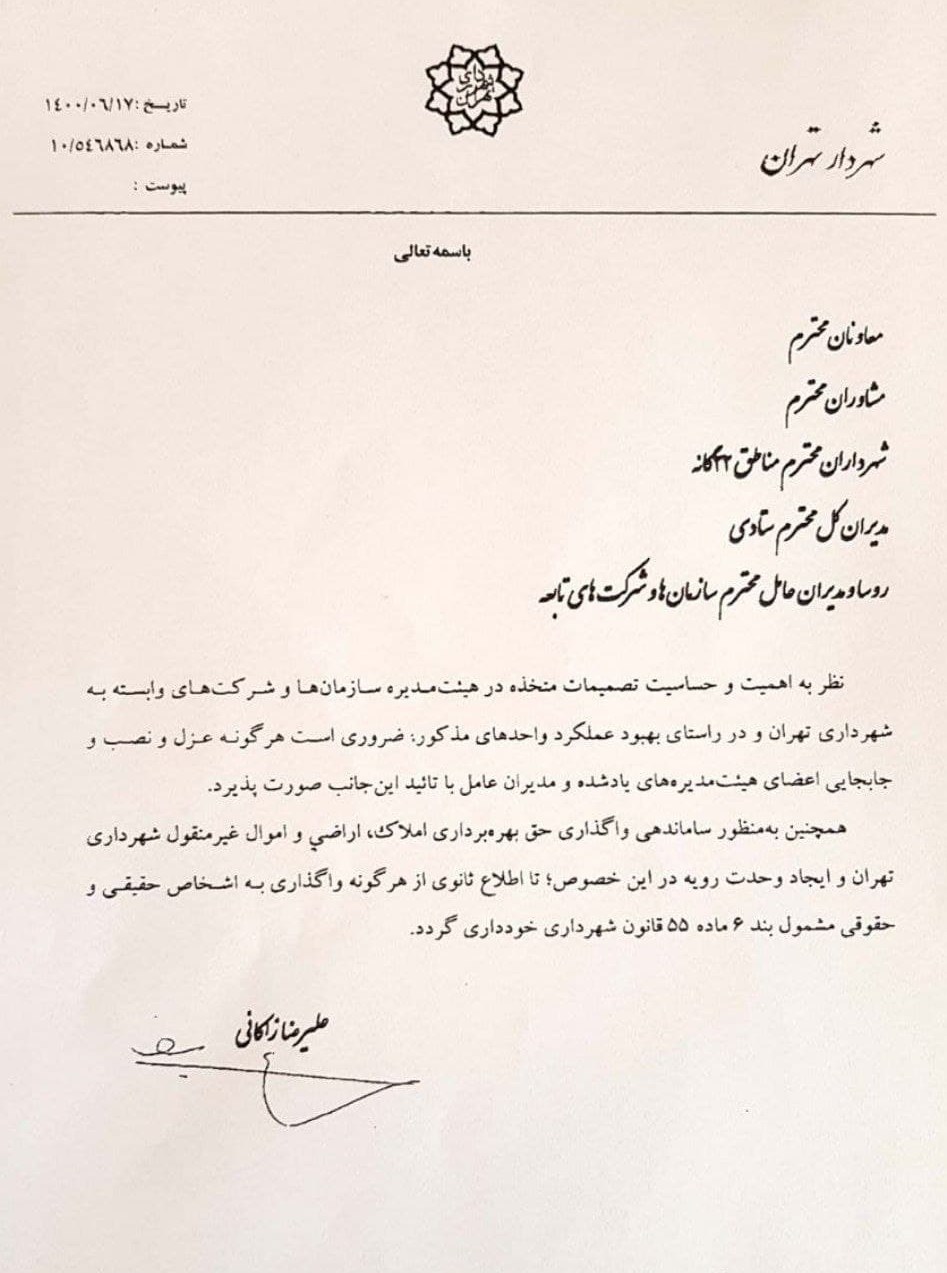 شهرداری تهران
شهردار تهران
تاریخ: ۱۴۰۰/۰۶/۱۷
شماره: ۱۰/۵۴۶۸۶۸
پیوست :
باسمه تعالی
معاونان محترم
مشاوران محترم
شهرداران محترم مناطق ۲۲گانه
مدیران کل محترم ستادی
روسا و مدیران عامل محترم سازمان ها و شرکت های تابعه
نظر به اهمیت و حساسیت تصمیمات متخذه در هیئت‌مدیره سازمان‌ها و شرکت‌های وابسته به
شهرداری تهران و در راستای بهبود عملکرد واحدهای مذکور؛ ضروری است هرگونه عزل و نصب و
جابجایی اعضای هیئت‌مدیره‌های یادشده و مدیران عامل با تائید این‌جانب صورت پذیرد.
همچنین به‌منظور ساماندهی واگذاری حق بهره‌برداری املاک، اراضی و اموال غیرمنقول شهرداری
تهران و ایجاد وحدت رویه در این خصوص؛ تا اطلاع ثانوی از هرگونه واگذاری به اشخاص حقیقی و
حقوقی مشمول بند ۶ ماده ۵۵ قانون شهرداری خودداری گردد.
علیرضا زاکانی